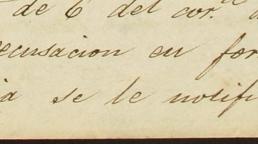 de 6 del cor.
ecusacion en for
a se le notifi